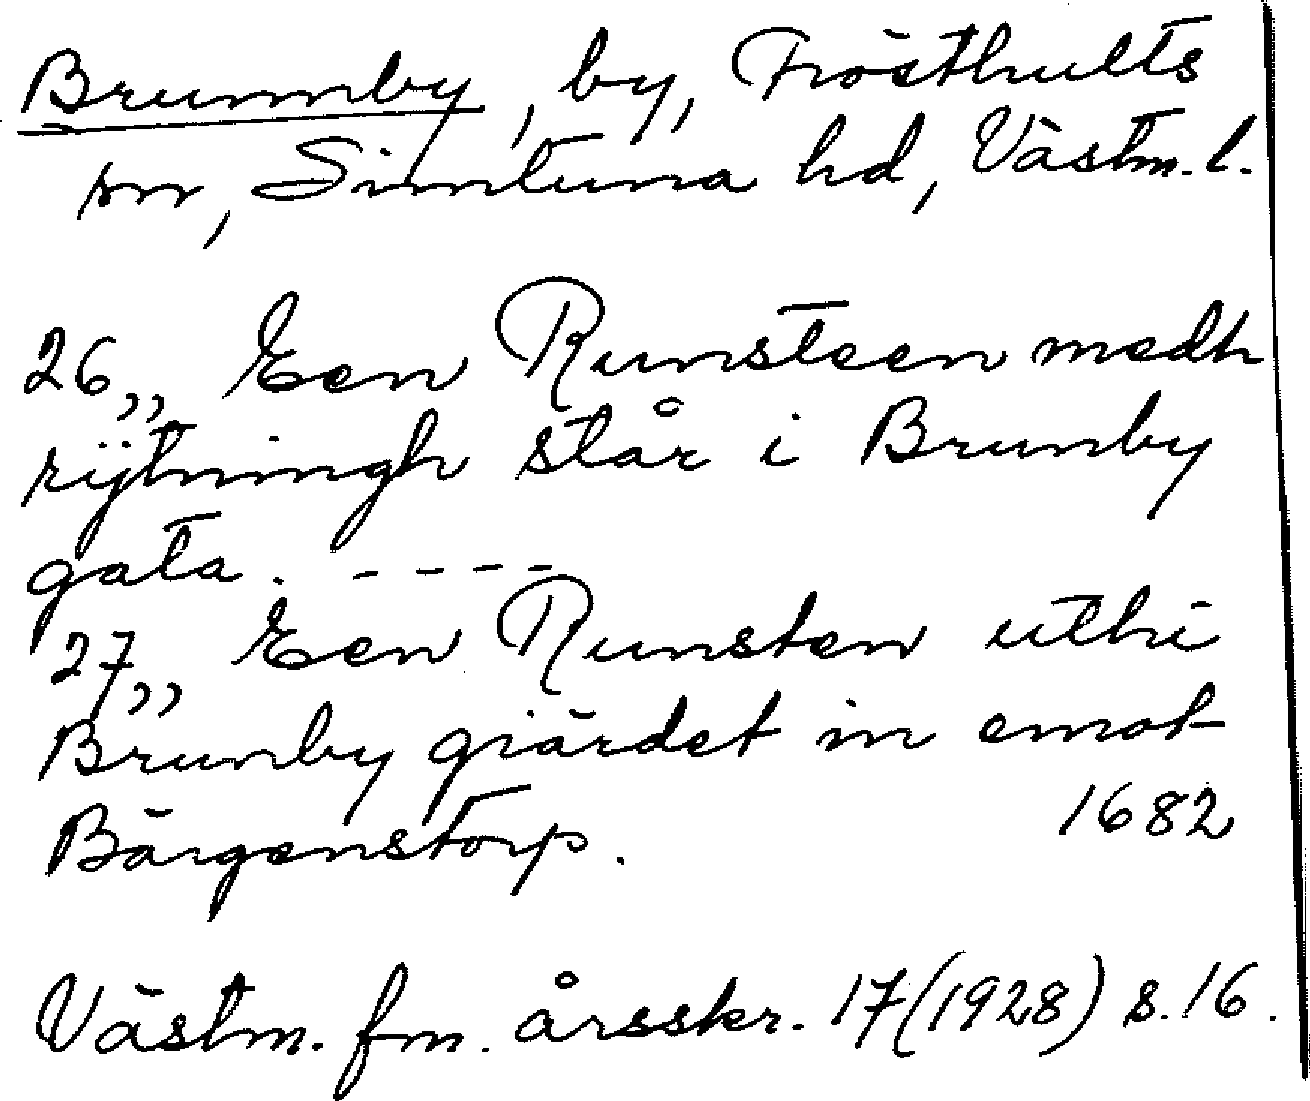 Brunnby, by, Frösthults
sn, Simtuna hd, Västm. l.
26,, Een Runsteen medh
rijtningh står i Brunby
gata. - - - -
27,, Een Runsten uthi
Brunby giärdet in emot
Bärgenstorp. 1682
Västm. fm. årsskr. 17(1928) s. 16.